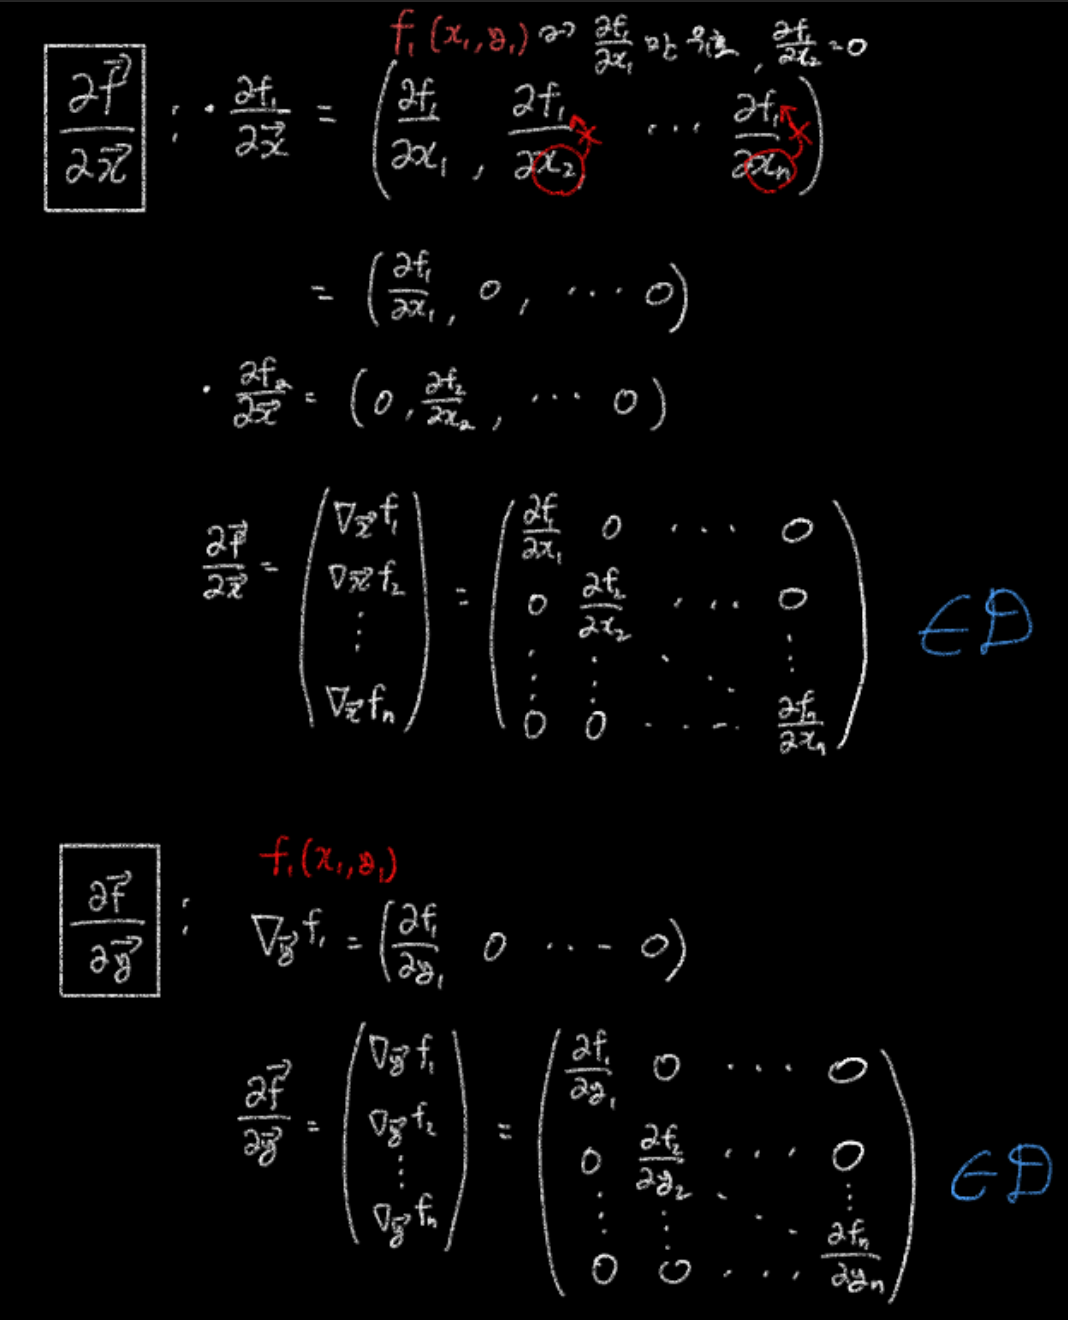 f₁(x₁, y₁) ⇒ ∂f₁/∂x₁ 만 유효, ∂f₁/∂x₂ = 0
∂f⃗/∂x⃗ : · ∂f₁/∂x⃗ = (∂f₁/∂x₁, ∂f₁/∂x₂ ⋯ ∂f₁/∂xₙ)
= (∂f₁/∂x₁, 0, ⋯ 0)
· ∂f₂/∂x⃗ = (0, ∂f₂/∂x₂, ⋯ 0)
∂f⃗/∂x⃗ = (∇x⃗ f₁ ∇x⃗ f₂ ⋮ ∇x⃗ fₙ) = (∂f₁/∂x₁ 0 ⋯ 0
0 ∂f₂/∂x₂ ⋯ 0
⋮ ⋮ ⋱ ⋮
0 0 ⋯ ∂fₙ/∂xₙ) ∈ D
f₁(x₁, y₁)
∂f⃗/∂y⃗ : ∇y⃗ f₁ = (∂f₁/∂y₁ 0 ⋯ 0)
∂f⃗/∂y⃗ = (∇y⃗ f₁ ∇y⃗ f₂ ⋮ ∇y⃗ fₙ) = (∂f₁/∂y₁ 0 ⋯ 0
0 ∂f₂/∂y₂ ⋯ 0
⋮ ⋮ ⋱ ⋮
0 0 ⋯ ∂fₙ/∂yₙ) ∈ D